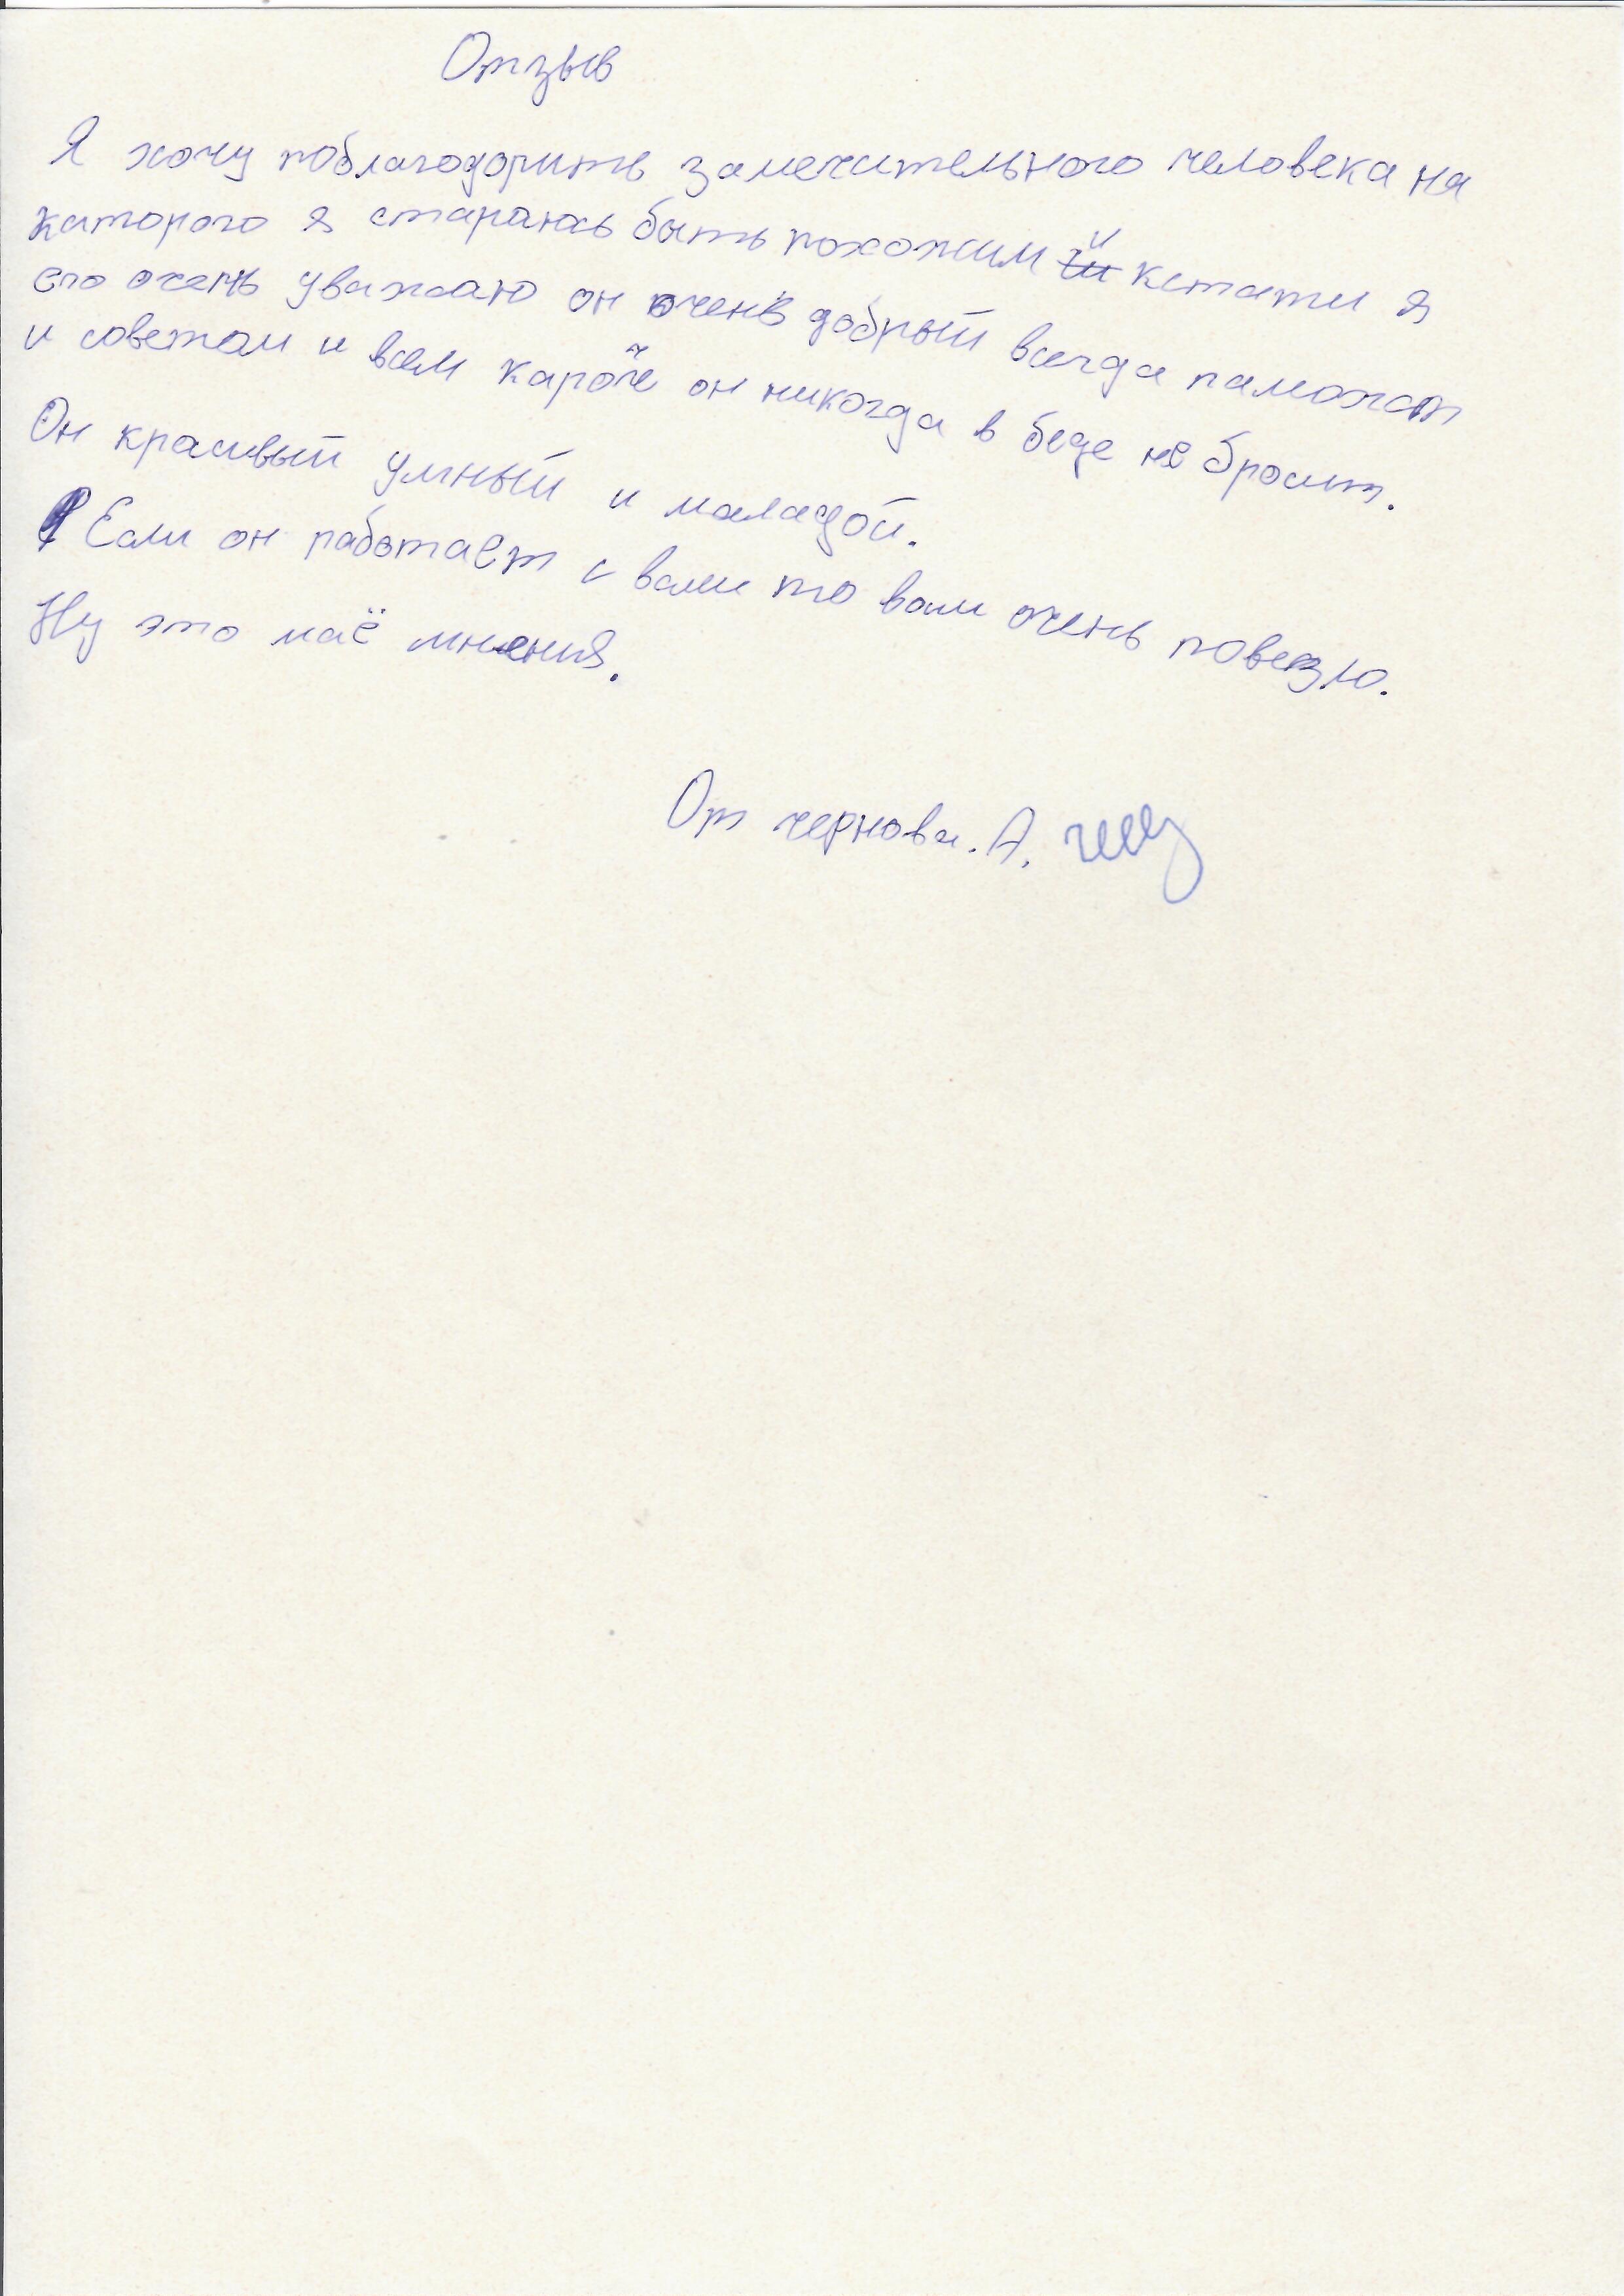 Отзыв
Я хочу поблагодорить замечительного человека на
каторого я стараюсь быть похожим и кстати я
его очень уважаю он очень добрый всегда паможет
и советом и всем кароче он никогда в беде не бросит.
Он красивый умный и маладой.
Если он работает с вами то вам очень повезло.
Ну это маё мнения.
От чернова. А.